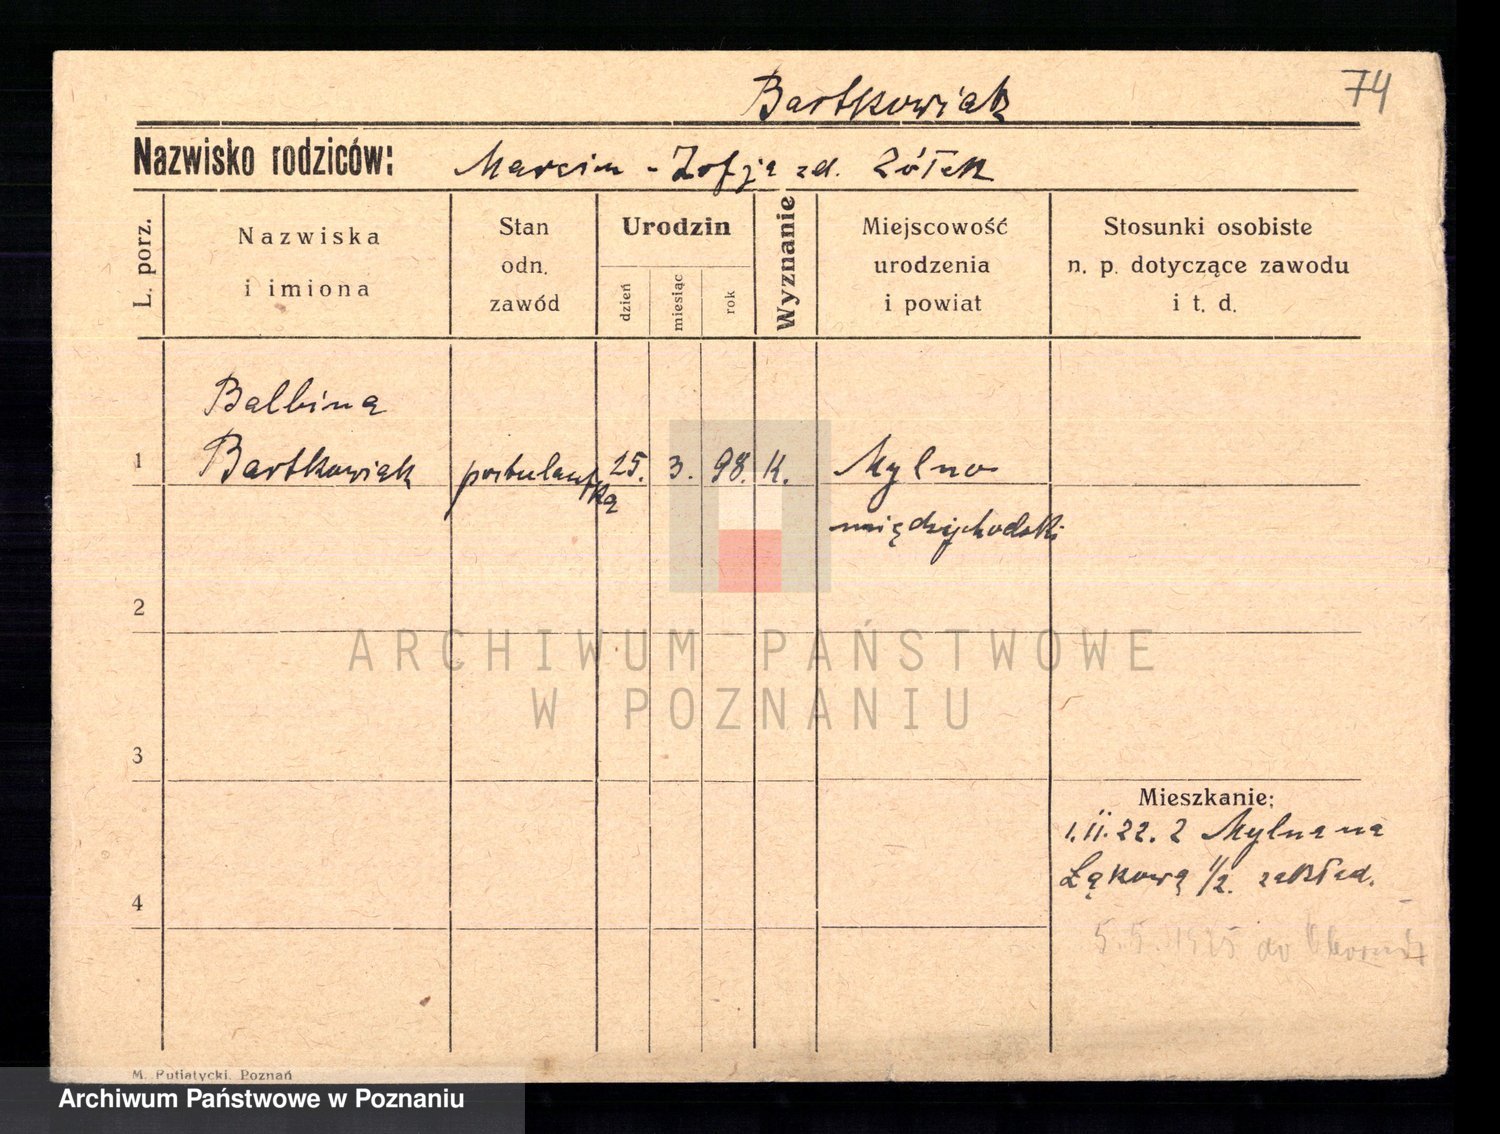 74
Bartkowiak
Nazwisko rodziców: Marcin - Zofja zd. Żółek
L. porz.
Nazwiska
i imiona
Stan
odn.
zawód
Urodzin
dzień
miesiąc
rok
Wyznanie
Miejscowość
urodzenia
i powiat
Stosunki osobiste
n. p. dotyczące zawodu
i t. d.
Balbina
1 Bartkowiak postulantka 25. 3. 98. K. Mylno
międzychodski
2
3
Mieszkanie:
1.II.22. z Mylna na
Łąkową 1/2. zakład.
4
5.5.1925 do
M. Putiatycki, Poznań
ARCHIWUM PAŃSTWOWE
W POZNANIU
Archiwum Państwowe w Poznaniu